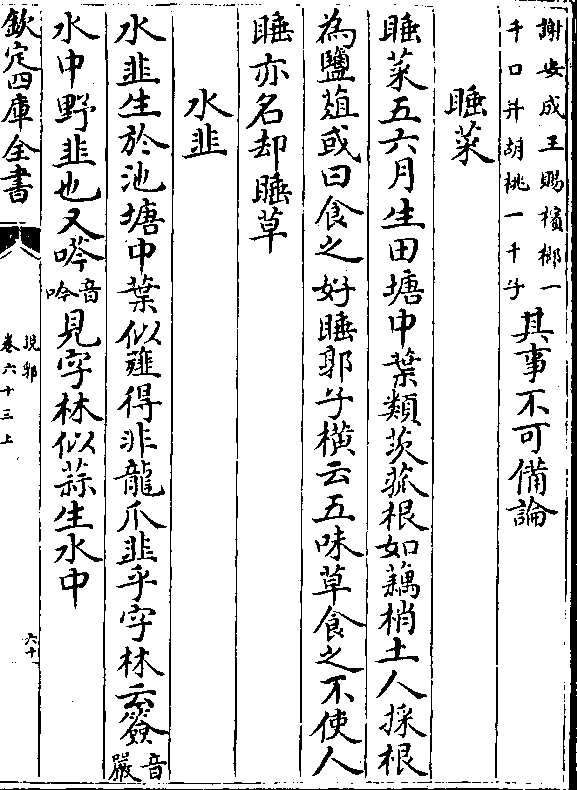 謝安成王賜檳榔一
千口并胡桃一千子其事不可備論
睡菜
睡菜五六月生田塘中葉類茨菰根如藕梢土人採根
為鹽葅或曰食之好睡郭子橫云五味草食之不使人
睡亦名却睡草
水韭
水韭生於池塘中葉似薤得非龍爪韭乎字林云䉷音嚴
水中野韭也又䔷音吟見字林似蒜生水中
欽定四庫全書
說郛
卷六十三上
六十